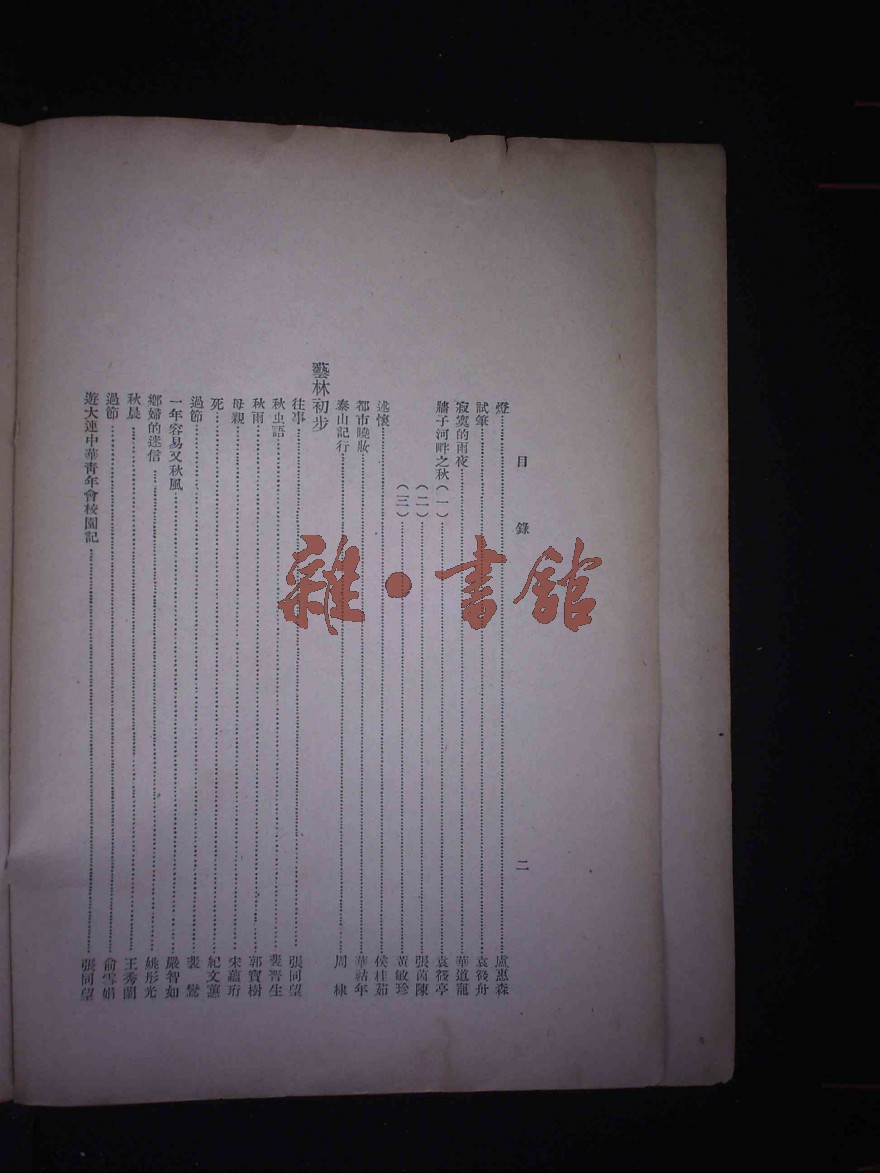 目錄 二
燈 盧惠森
試筆 袁筱舟
寂寞的雨夜 華道寵
牆子河畔之秋(一) 袁筱亭
(二) 張茵陳
(三) 黃敏珍
述懷 侯桂茹
都市曉妝 華祜年
泰山記行 周棣
藝林初步
往事 張同望
秋虫語 裴晋生
秋雨 郭寶樹
母親 宋蘊珩
死 紀文蕙
過節 裴鴬
一年容易又秋風 嚴智如
鄉婦的迷信 姚彤光
秋晨 王秀蘭
過節 俞雪娟
遊大連中華青年會校園記 張同望
雜·書館